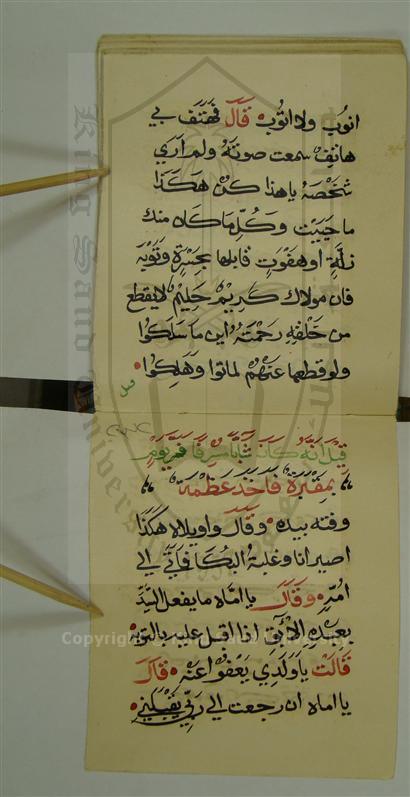 اتوب ولا اتوب قال فهتف بي
هاتف سمعت صوته ولم اري
شخصه يا هذا كن هكذا
ما حييت وكل ما كان منك
زلة او هفوت قابلها بعبرة وتوبه
فان مولاك كريم حليم لا يقطع
من خلفه رحمته اين ما سلكوا
ولو قطعها عنهم لماتوا وهلكوا
قيل
قيل انه كان شابا مسرفا فمر يوم
بمقبرة فاخذ عظمة
وفته بيده وقال واويلاه هكذا
اصير انا وغلبة البكا فاتي الي
امه وقال يا اماه ما يفعل السيد
بعبده الابق اذا اقبل عليه بالتوبه
قالت يا ولدي يعفوا عنه قال
يا اماه ان رجعت الي ربي يقبلني